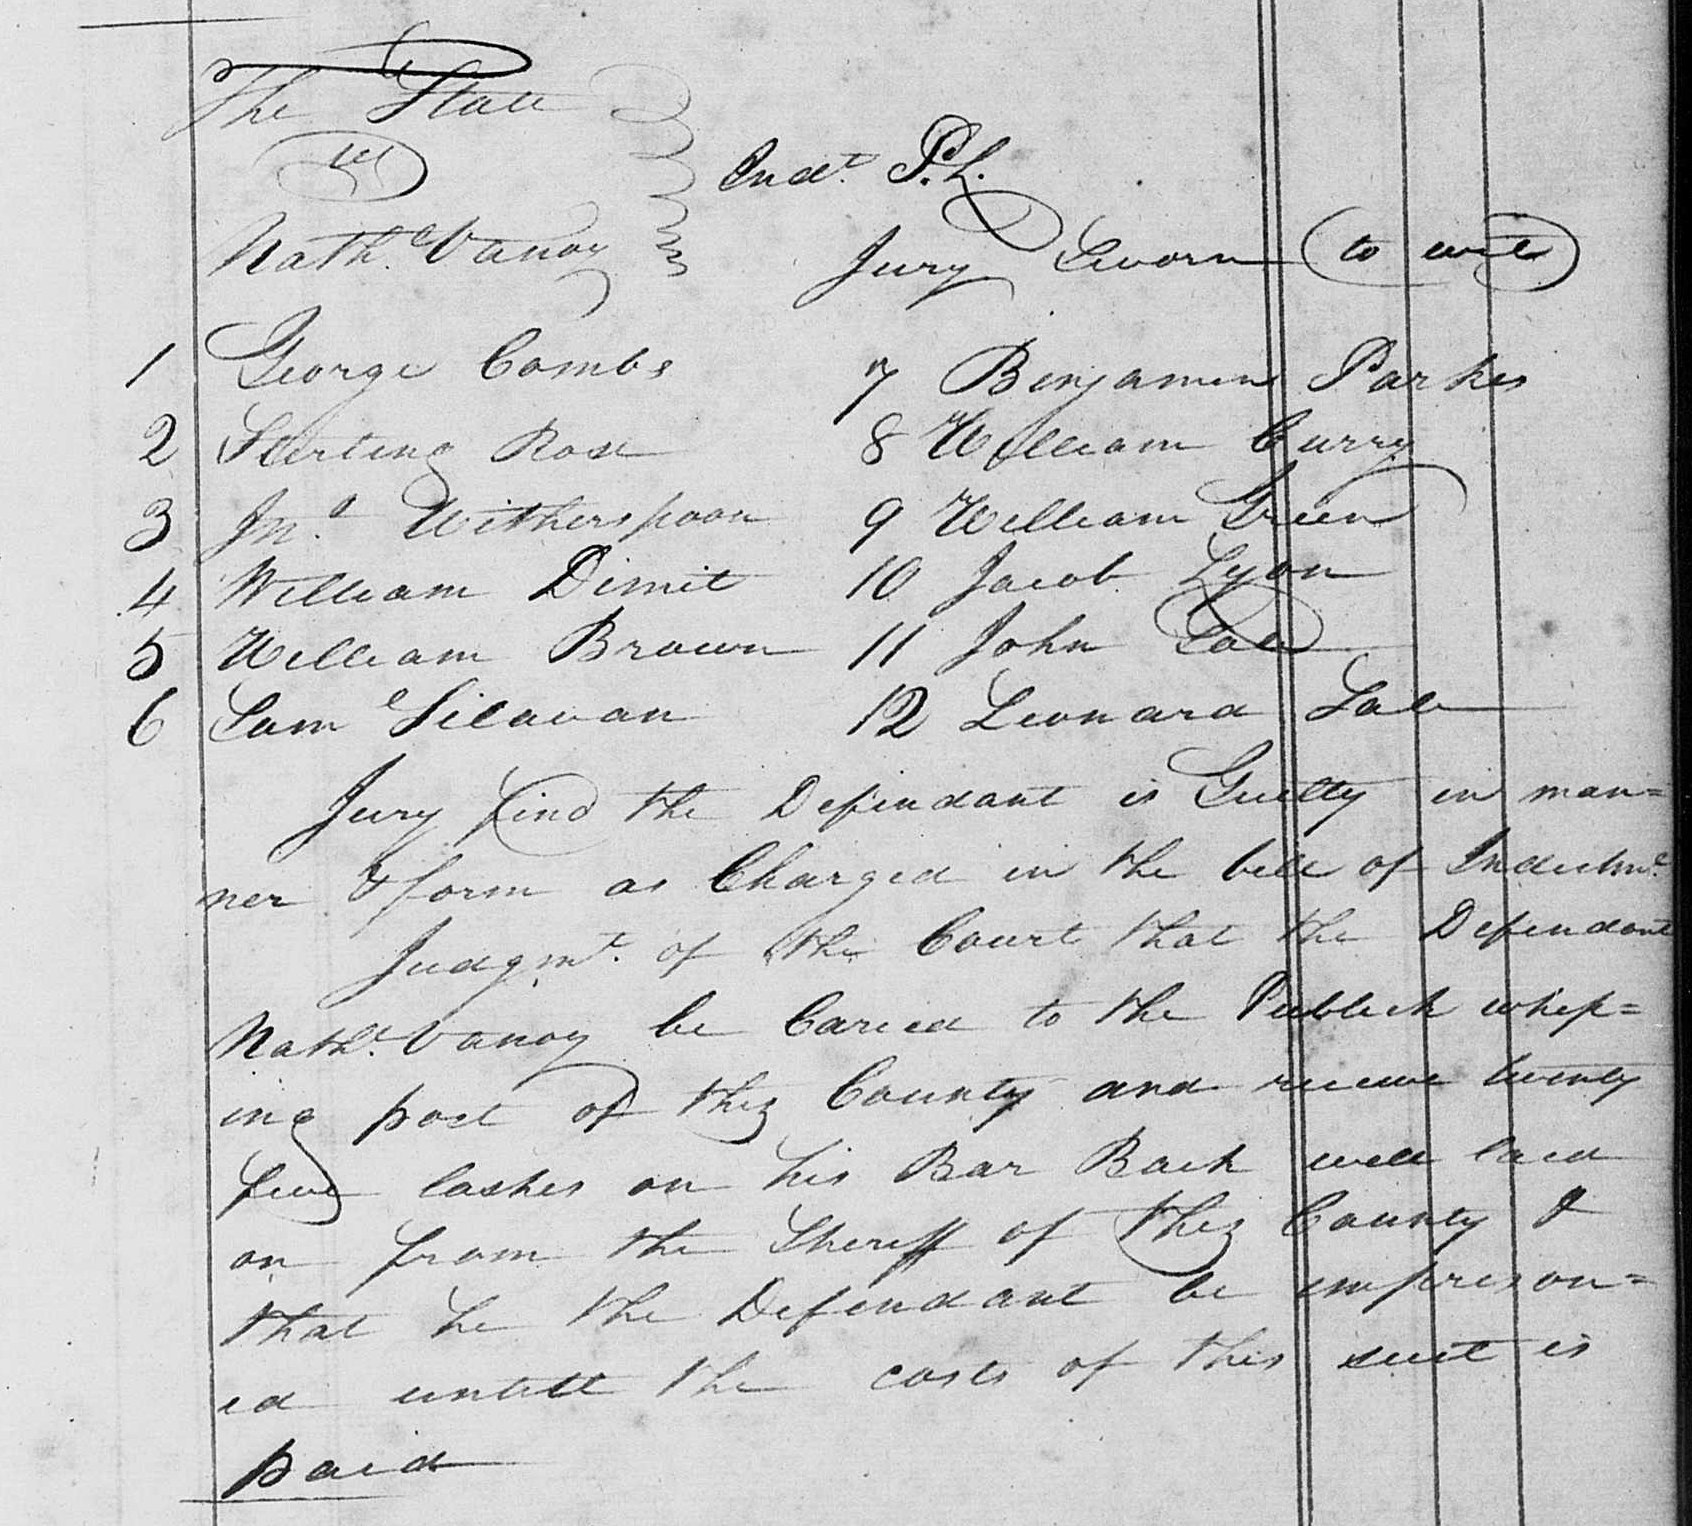 The State
vs
Indt. P.L.
Nathl. Vanoy
Jury Sworn to wit
1 George Combs
7 Benjamin Parks
2 Sterling Rose
8 William Curry
3 Jno. Witherspoon
9 William Green
4 William Dimit
10 Jacob Lyon
5 William Brown
11 John
6 Saml Silavan
12 Leonard
Jury find the Defendant is Guilty in man=
ner & form as Charged in the bill of Indictmt.
Judgmt. of the Court that the Defendant
Nathl. Vanoy be Caried to the Publick whip=
ing post of this County and receive twenty
five lashes on his Bar Back well laid
on from the Sheriff of this County &
that he the Defendant be imprison=
ed untill the costs of this suit is
paid